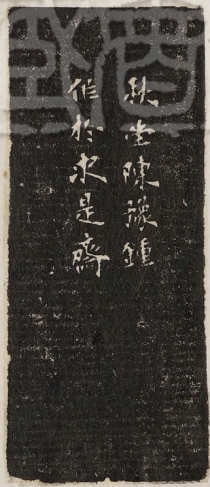 秋堂陳豫鍾
作於求是齋